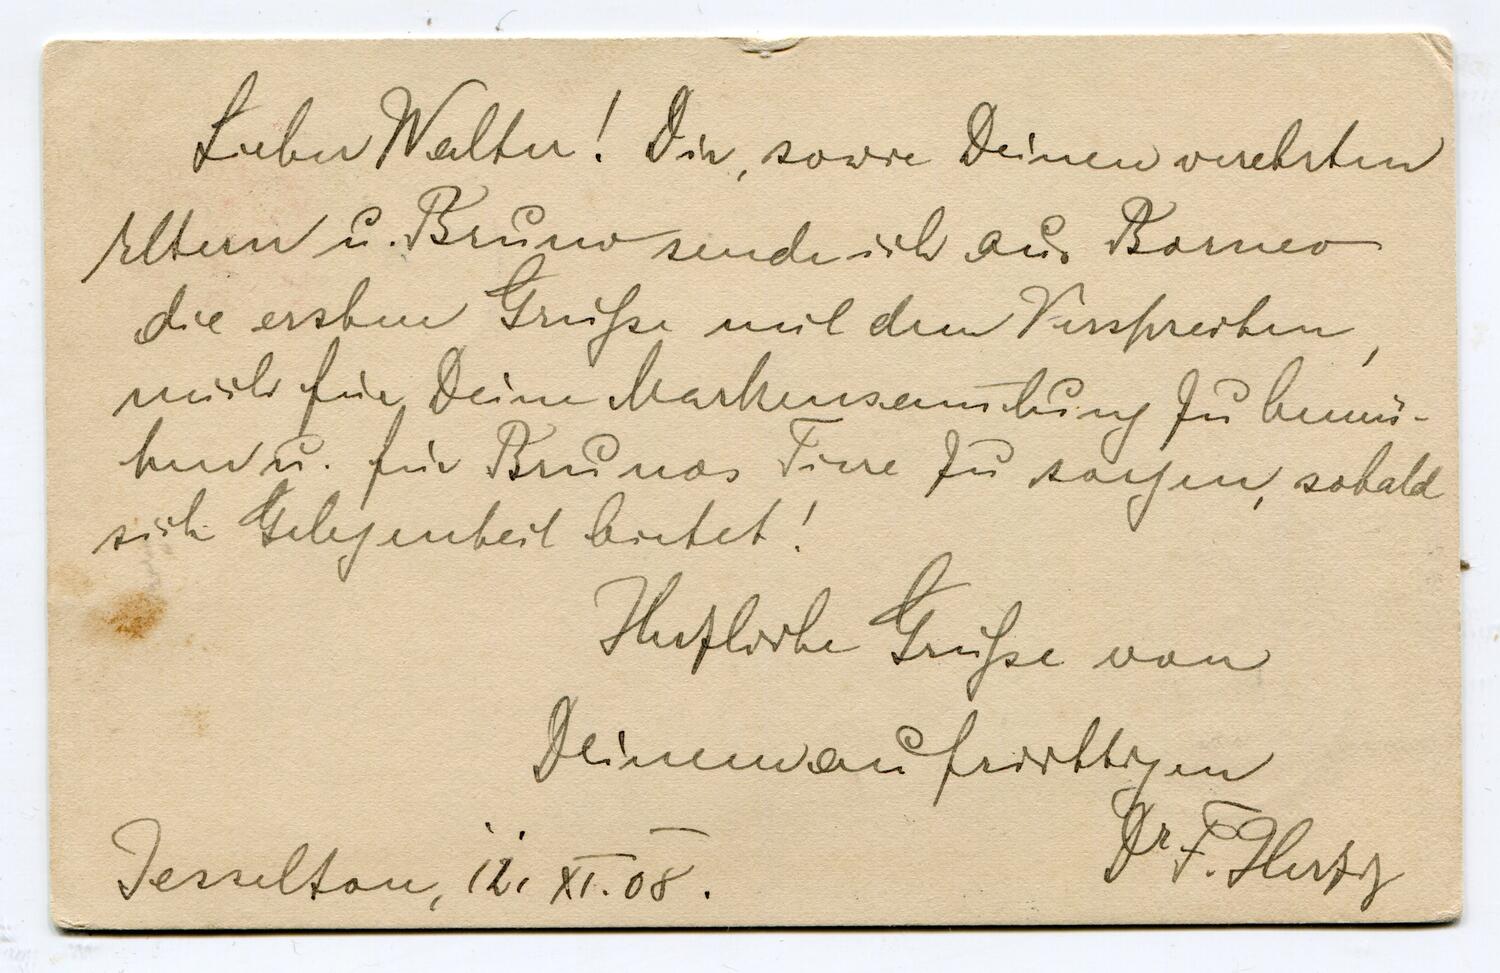 Lieber Walter! Dir, sowie Deinen verehrten
Eltern u. Bruno sende ich aus Borneo
die ersten Grüße mit dem Versprechen,
mich für Deine Markensammlung zu bemü-
hen u. für Brunos Tiere zu sorgen, sobald
sich Gelegenheit bietet!
Herzliche Grüße von
Deinem aufrichtigen
Dr F. Hertz
Jesselton, 12. XI. 08.